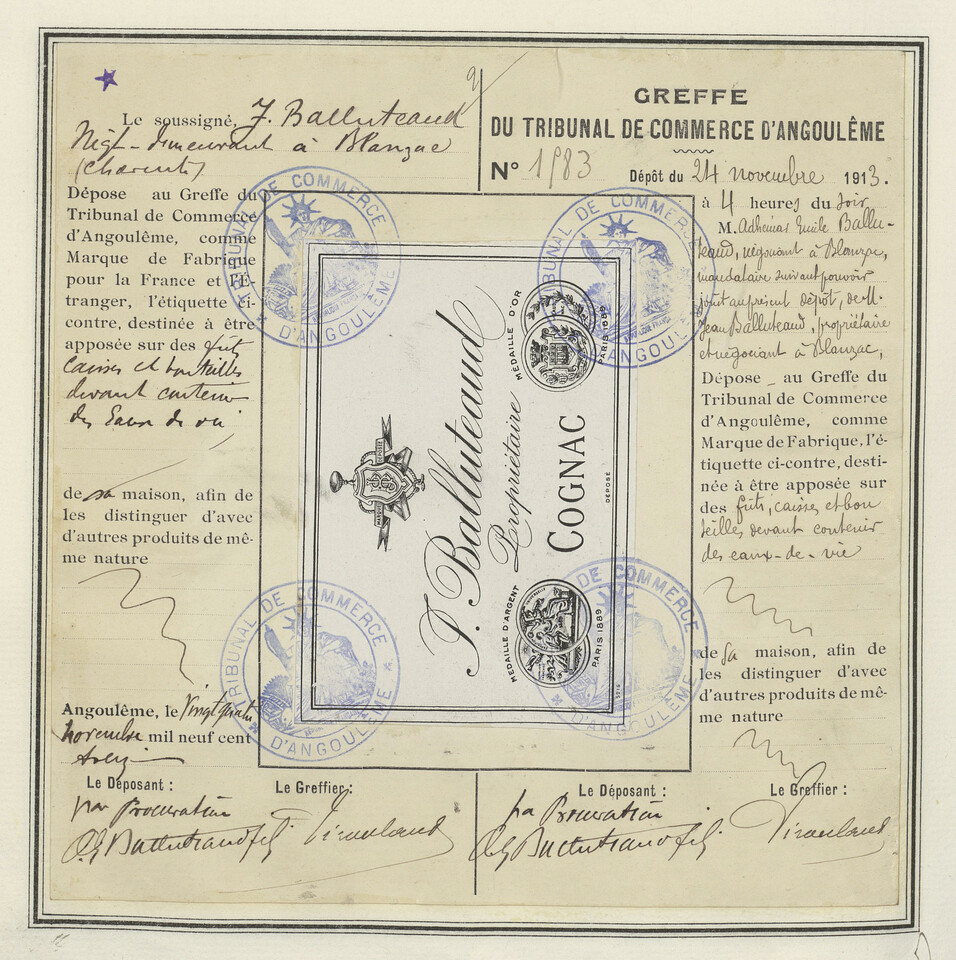 Le soussigné, J. Balluteaud
Négt demeurant à Blanzac
(Charente)
Dépose au Greffe du
Tribunal de Commerce
d'Angoulême, comme
Marque de Fabrique
pour la France et l'É-
tranger, l'étiquette ci-
contre, destinée à être
apposée sur des fûts
caisses et bouteilles
devant contenir
des Eaux de vie
de sa maison, afin de
les distinguer d'avec
d'autres produits de mê-
me nature
Angoulême, le vingt quatre
novembre mil neuf cent
treize
Le Déposant :
Le Greffier :
par Procuration
GREFFE
DU TRIBUNAL DE COMMERCE D'ANGOULÊME
N° 1983
Dépôt du 24 novembre 1913.
à 4 heures du soir
M. Adhémar Emile Ballu-
teaud, négociant à Blanzac,
mandataire suivant pouvoir
joint au présent dépôt, de M.
Jean Balluteaud, propriétaire
et négociant à Blanzac,
Dépose au Greffe du
Tribunal de Commerce
d'Angoulême, comme
Marque de Fabrique, l'é-
tiquette ci-contre, desti-
née à être apposée sur
des fûts, caisses et bou
teilles devant contenir
des eaux-de-vie
de sa maison, afin de
les distinguer d'avec
d'autres produits de mê-
me nature
Le Déposant :
Le Greffier :
par Procuration
J. Balluteaud
Propriétaire
COGNAC
DÉPOSÉ
MARQUE DÉPOSÉE
MÉDAILLE D'OR
PARIS 1889
MÉDAILLE D'ARGENT
PARIS 1889
TRIBUNAL DE COMMERCE
D'ANGOULÊME
TRIBUNAL DE COMMERCE
D'ANGOULÊME
TRIBUNAL DE COMMERCE
D'ANGOULÊME
TRIBUNAL DE COMMERCE
D'ANGOULÊME